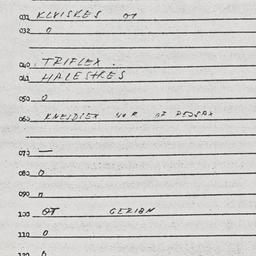 031 KLVISKES OT
032 O
040 TRIFLEX .
041 HALESTRES
050 O
060 KNEIDLEX NOR OF PEDSAX
070 —
080 O
090 n
100 OT GERIAN
110 O
120